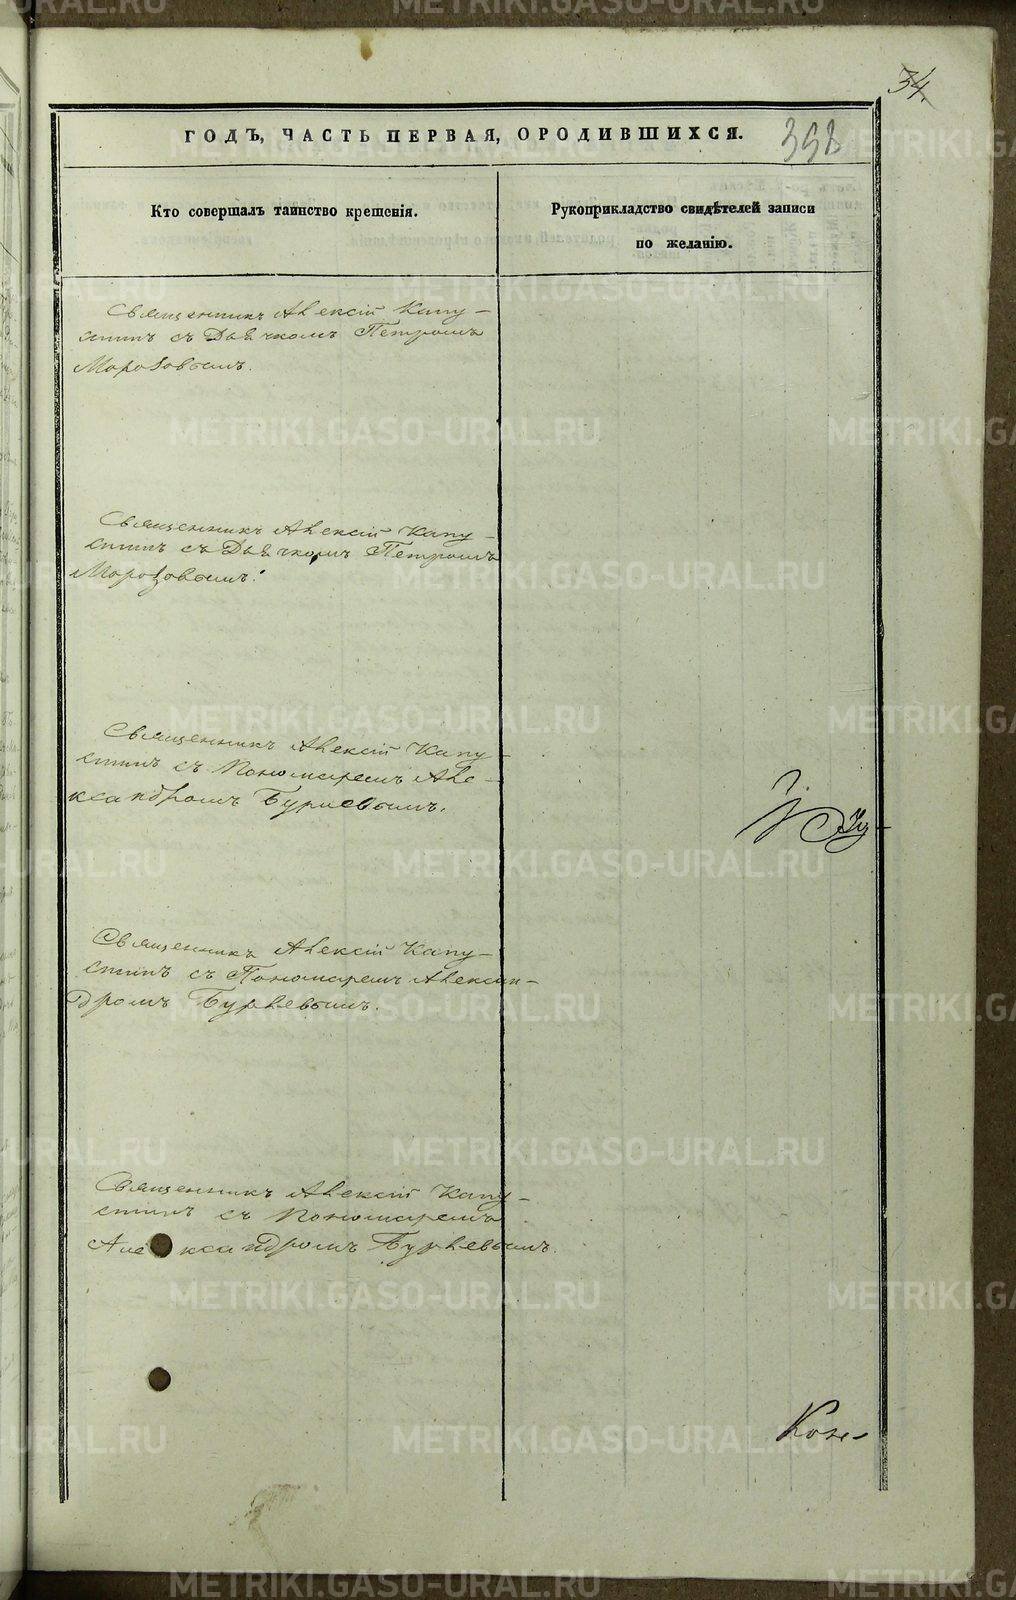 34.
ГОДЪ, ЧАСТЬ ПЕРВАЯ, О РОДИВШИХСЯ.
398
Кто совершалъ таинство крещенія.
Рукоприкладство свидѣтелей записи
по желанію.
Священникъ Алексій Капу-
стинъ съ Дьячкомъ Петромъ
Морозовымъ.
Священникъ Алексій Капу-
стинъ съ Дьячкомъ Петромъ
Морозовымъ.
Священникъ Алексій Капу-
стинъ съ Пономаремъ Але-
ксандромъ Бурлевымъ.
Священникъ Алексій Капу-
стинъ съ Пономаремъ Алексан-
дромъ Бурлевымъ.
Священникъ Алексій Капу-
стинъ съ Пономаремъ
Александромъ Бурлевымъ.
METRIKI.GASO-URAL.RU